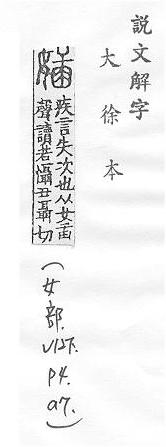 說文解字
大徐本
㛼
疾言失次也从女臿
聲讀若懾丑聶切
(女部. V12下. P4. a7.)